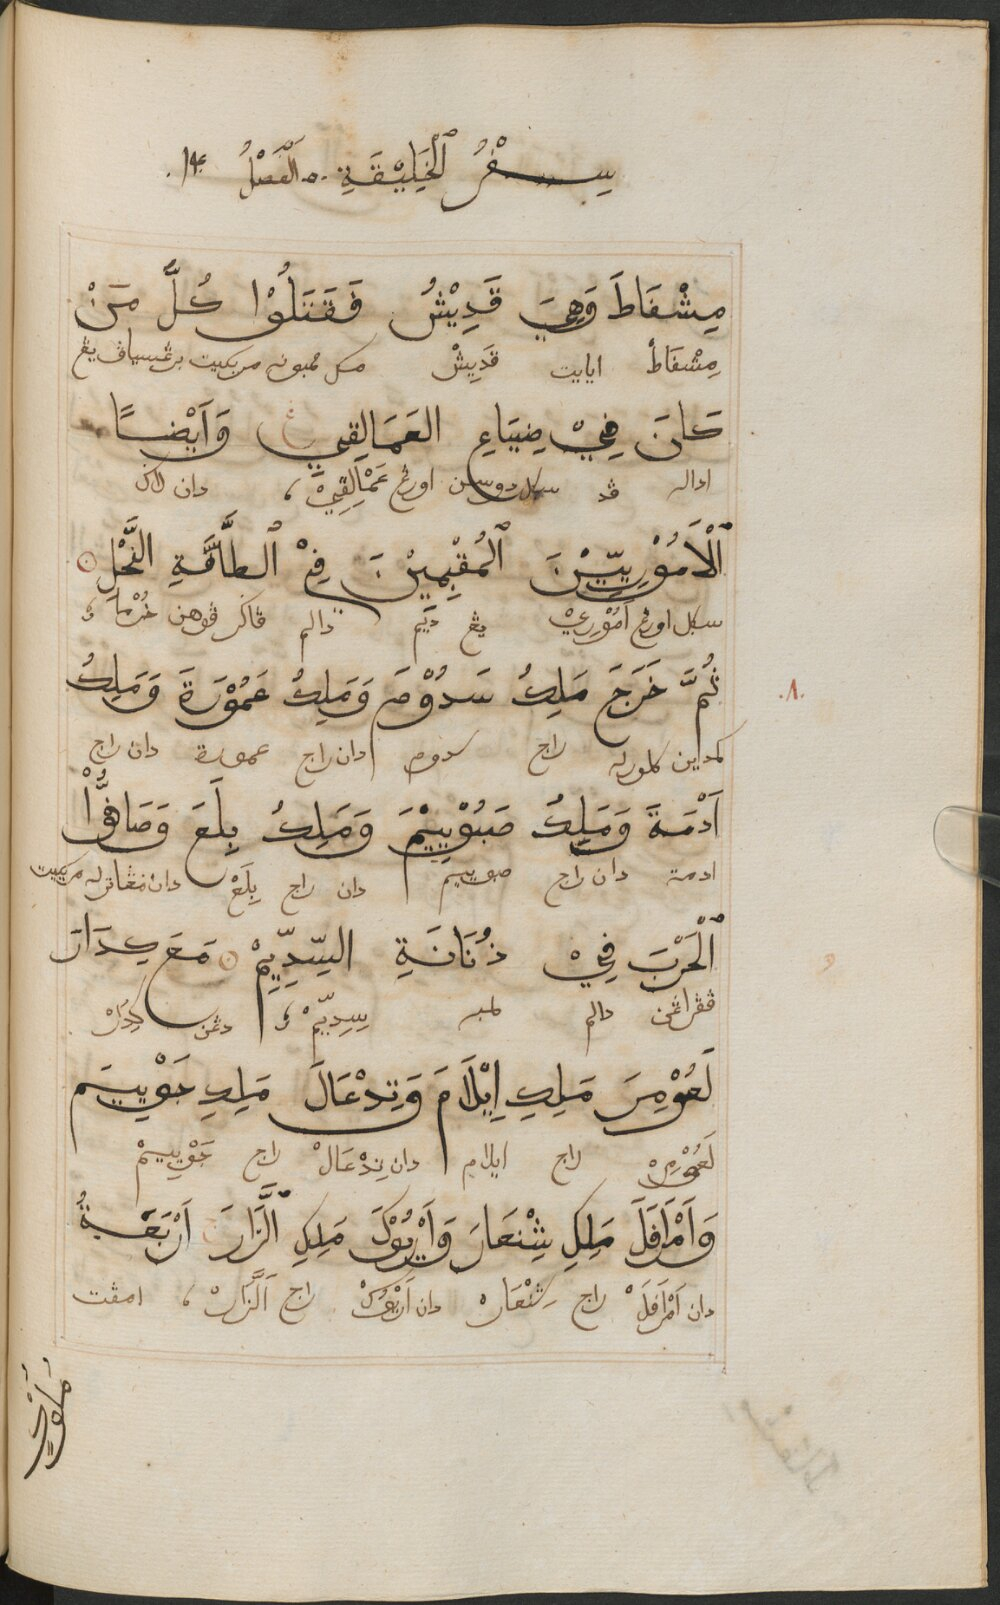 سِفْرُ ٱلْخَلِيْقَةِ ٱلْفَصْلُ ١٤
مِشْفَاطَ وَهِيَ قَدِيْشُ فَقَتَلُوْا كُلَّ مَنْ
مِشْفَاطْ اياايت قَدِيشْ مك ممبونه مريكيت برڠسياڤ يڠ
كَانَ فِيْ ضِيَاعِ العَمَالِقِيِ وَأَيْضًا
اداله ڤد سكل دوسن اورڠ عَمَالِقِيْ، دان لاݢ
ٱلْأَمُوْرِيِّيْنَ ٱلْمُقِيْمِيْنَ فِيْ ٱلطَّاقَةِ النَّخْلِ
سكل اورڠ أَمُوْرِيْ يڠ ديم دالم ڤاكر ڤوهن خُرْما،
٨
ثُمَّ خَرَجَ مَلِكُ سَدُوْمَ وَمَلِكُ عَمُوْرَةَ وَمَلِكُ
كمدين كلورله راج سدوم دان راج عمورة دان راج
أَدْمَةَ وَمَلِكُ صَبُوْيِيْمَ وَمَلِكُ بِلَعَ وَصَافُّوْا
ادمة دان راج صبوييم دان راج بِلَعْ دان مڠاتورله مريكيت
ٱلْحَرْبَ فِيْ دُنَانَةِ السِّدِّيِمْ مَعَ كِدَارَ
ڤڤراڠن دالم لمبه سِدِّيِمْ، دڠن كِدَارْ
لَعُوْمِرَ مَلِكِ إِيْلَامَ وَتِدْعَالَ مَلِكِ جَوْيِيَم
لَعُوْمِرْ راج ايلام دان تِدْعَالْ راج جَوْيِيمْ
وَأَمْرَافَلَ مَلِكِ شِنْعَارَ وَأَرْيُوْكَ مَلِكِ ٱلَّزَارَ أَرْبَعَةُ
دان أَمْرَافَلْ راج شِنْعَارْ دان أَرْيُوكْ راج أَلَّزَارْ، امڤت
مُلُوْكٍ